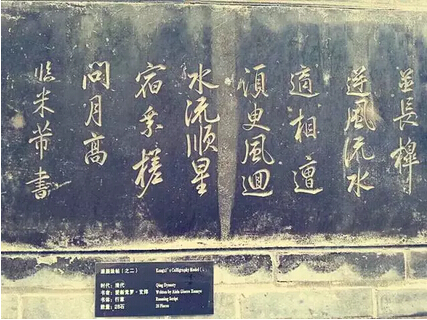 並長
逆風流水
適相遭
須臾風迴
水流順星
宿乘槎
問月高
臨米芾書
康熙法帖（之二） Kangxi's Calligraphy Model
时代：清代 Qing Dynasty
书者：爱新觉罗·玄烨 Written by Aisin Gioro Xuanye
书体：行书 Running Script
数量：28石 28 Pieces